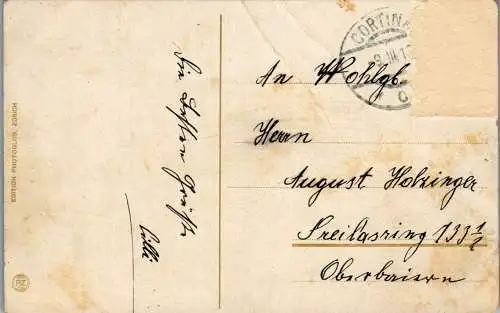 EDITION PHOTOGLOB, ZÜRICH
PZ
Die besten Grüße
Cilli
CORTINA
9.III.1
An Wohlgb.
Herrn
August Holzinger
Freilasring 133 1/2
Oberbaiern